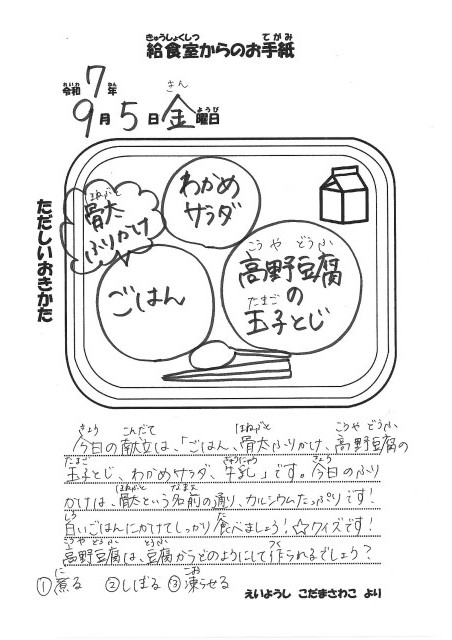 きゅうしょくしつ てがみ
給食室からのお手紙
れいわ ねん
令和7年
きん ようび
9月5日金曜日
ただしいおきかた
ほねぶと
骨太
ふりかけ
わかめ
サラダ
ごはん
こうやどうふ
高野豆腐
の
たまご
玉子とじ
きょう こんだて ほねぶと こうやどうふ
今日の献立は、「ごはん、骨太ふりかけ、高野豆腐の
たまご ぎゅうにゅう きょう
玉子とじ、わかめサラダ、牛乳」です。今日のふり
ほねぶと なまえ
かけは、骨太という名前の通り、カルシウムたっぷりです!
しろ た
白いごはんにかけてしっかり食べましょう!☆クイズです!
こうやどうふ つく
高野豆腐は、豆腐からどのようにして作られるでしょう?
に こお
①煮る ②しばる ③凍らせる
えいようし こだまさわこ より